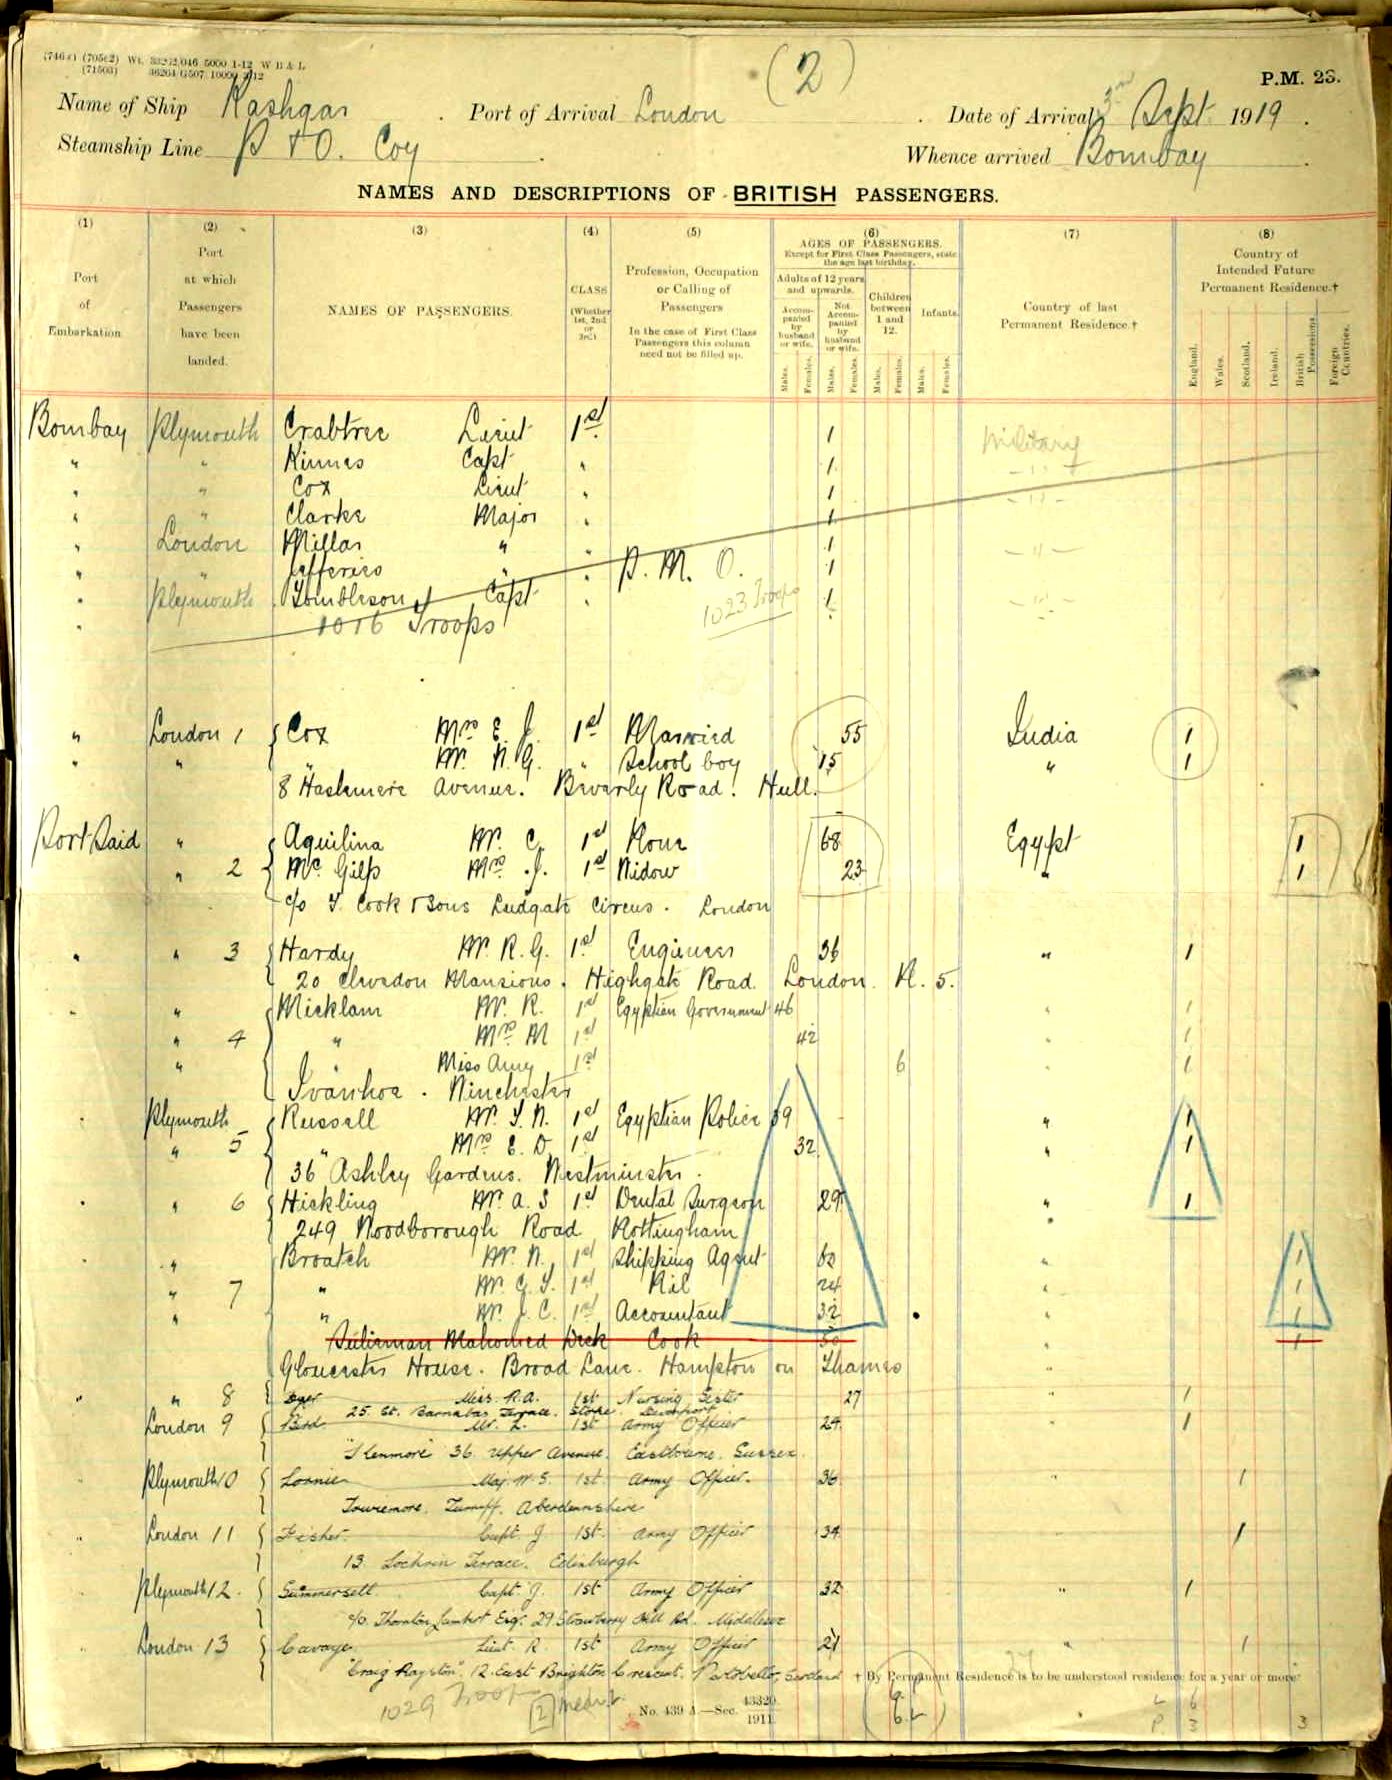 (746s) (705c2) Wt. 33292/046 5000 1-12 W B & L
(71503) 36264/G507 10000 2/12
(2)
P.M. 23.
Name of Ship Kashgar . Port of Arrival London . Date of Arrival 3rd Sept. 1919 .
Steamship Line P & O. Coy . Whence arrived Bombay .
NAMES AND DESCRIPTIONS OF BRITISH PASSENGERS.
(1) (2) (3) (4) (5) (6) (7) (8)
Port of Embarkation.
Port at which Passengers have been landed.
NAMES OF PASSENGERS.
CLASS (Whether 1st, 2nd or 3rd.)
Profession, Occupation or Calling of Passengers
In the case of First Class Passengers this column need not be filled up.
AGES OF PASSENGERS.
Except for First Class Passengers, state the age last birthday.
Adults of 12 years and upwards.
Accompanied by husband or wife.
Not Accompanied by husband or wife.
Children between 1 and 12.
Infants.
Males. Females. Males. Females. Males. Females. Males. Females.
Country of last Permanent Residence.†
Country of Intended Future Permanent Residence.†
England. Wales. Scotland. Ireland. British Possessions. Foreign Countries.
Bombay Plymouth Crabtree Lieut 1st 1 Military
" " Kinnes Capt " 1 - " -
" " Cox Lieut " 1 - " -
" " Clarke Major " 1
" London Millar " " 1 - " -
" " Jefferies " " P. M. O. 1
" Plymouth Tombleson Capt " 1 - " -
" 1016 Troops 1023 Troops
" London 1 { Cox Mrs E. J. 1st Married 55 India 1
" " " Mr. N. G. " School boy 15 " 1
8 Haslemere Avenue. Beverly Road. Hull.
Port Said " { Aquilina Mr. C. 1st None 68 Egypt 1
" 2 { McGilp Mrs. J. 1st Widow 23 " 1
c/o T. Cook & Sons Ludgate Circus. London
" " 3 { Hardy Mr. R. G. 1st Engineer 36 " 1
20 Clevedon Mansions. Highgate Road London. N. 5.
" " Micklam Mr. R. 1st Egyptian Government 46 " 1
" 4 " Mrs M 1st 42 " 1
" Miss Amy 1st 6 " 1
Ivanhoe. Winchester
Plymouth Russell Mr. T. W. 1st Egyptian Police 39 " 1
" 5 " Mrs E. D. 1st 32 " 1
36 Ashley Gardens. Westminster.
" " 6 { Hickling Mr. A. S 1st Dental Surgeon 29 " 1
249 Woodborough Road Nottingham
" Broatch Mr. W. 1st Shipping Agent 60 " 1
" 7 " Mr. G. T. 1st Nil 24 " 1
" " Mr. J. C. 1st Accountant 32 " 1
Suleiman Mahomed Deck Cook 50 1
Gloucester House. Broad Lane. Hampton on Thames
" " 8 { Dyer Miss. R. A. 1st Nursing Sister 27 " 1
25. St. Barnabas Terrace. Stoke. Devonport
London 9 { Bird Mr. L. 1st Army Officer 24 " 1
"Glenmore" 36. Upper Avenue. Eastbourne. Sussex.
Plymouth 10 { Maj. W. S. 1st. Army Officer. 36 " 1
Towiemore. Turriff. Aberdeenshire
" London 11 { Fisher. Capt. J. 1st. Army Officer 34 1
13 Lochrin Terrace. Edinburgh
Plymouth 12. { Summersell. Capt. J. 1st Army Officer 32 " 1
c/o. Thornton Lambert Esq. 29 Strawberry Hill Rd. Middlesex
" London 13 { Cavaye. Lieut. R. 1st Army Officer 21 " 1
"Craig Royston", 12. East Brighton Crescent. Portobello, Scotland
† By Permanent Residence is to be understood residence for a year or more.
1029 Troops
No. 439 A.—Sec. 43320/1911
L 6
P. 3 3